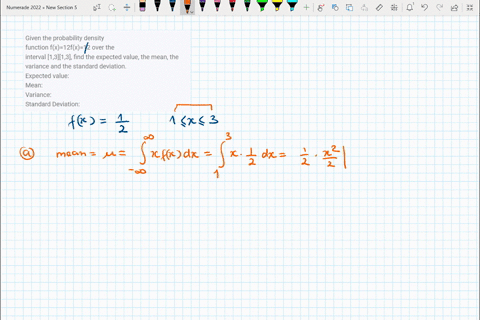 Numerade 2022 » New Section 5
Given the probability density
function f(x)=12f(x)=1/2 over the
interval [1,3][1,3], find the expected value, the mean, the
variance and the standard deviation.
Expected value:
Mean:
Variance:
Standard Deviation:
f(x) = 1/2 1 ≤ x ≤ 3
(a) mean = μ = ∫_{-∞}^{∞} x f(x) dx = ∫_1^3 x · 1/2 dx = 1/2 · x²/2 |